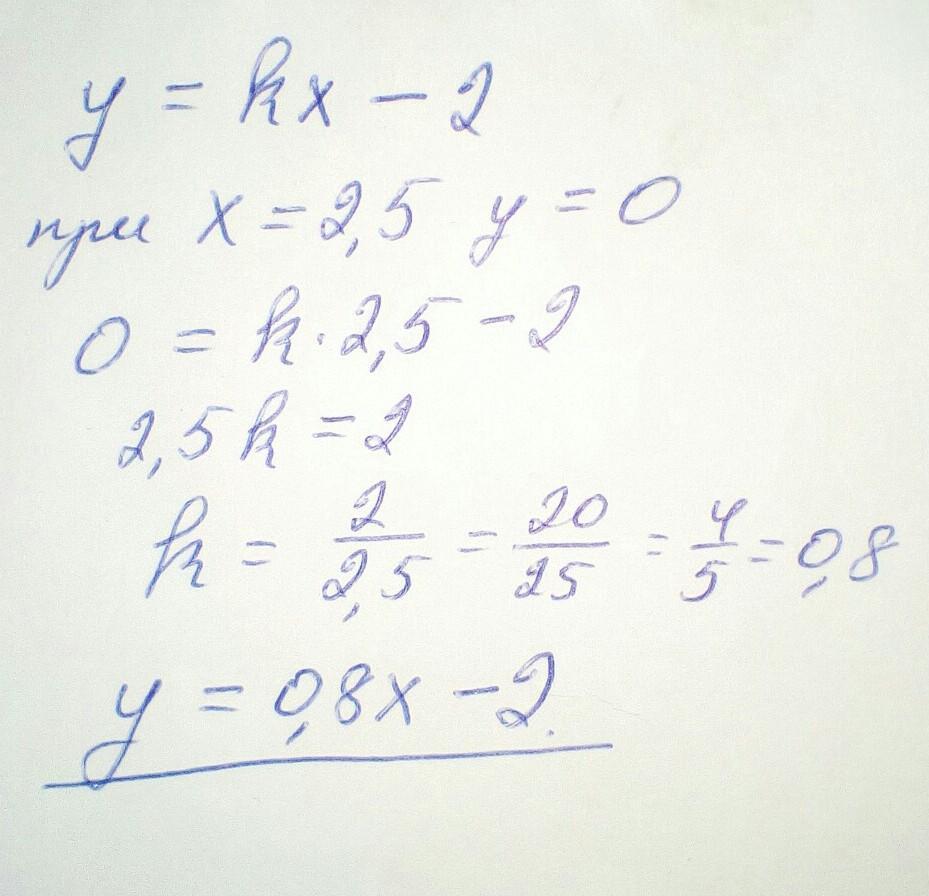 y = kx - 2
при x = 2,5 y = 0
0 = k · 2,5 - 2
2,5k = 2
k = 2/2,5 = 20/25 = 4/5 = 0,8
y = 0,8x - 2.